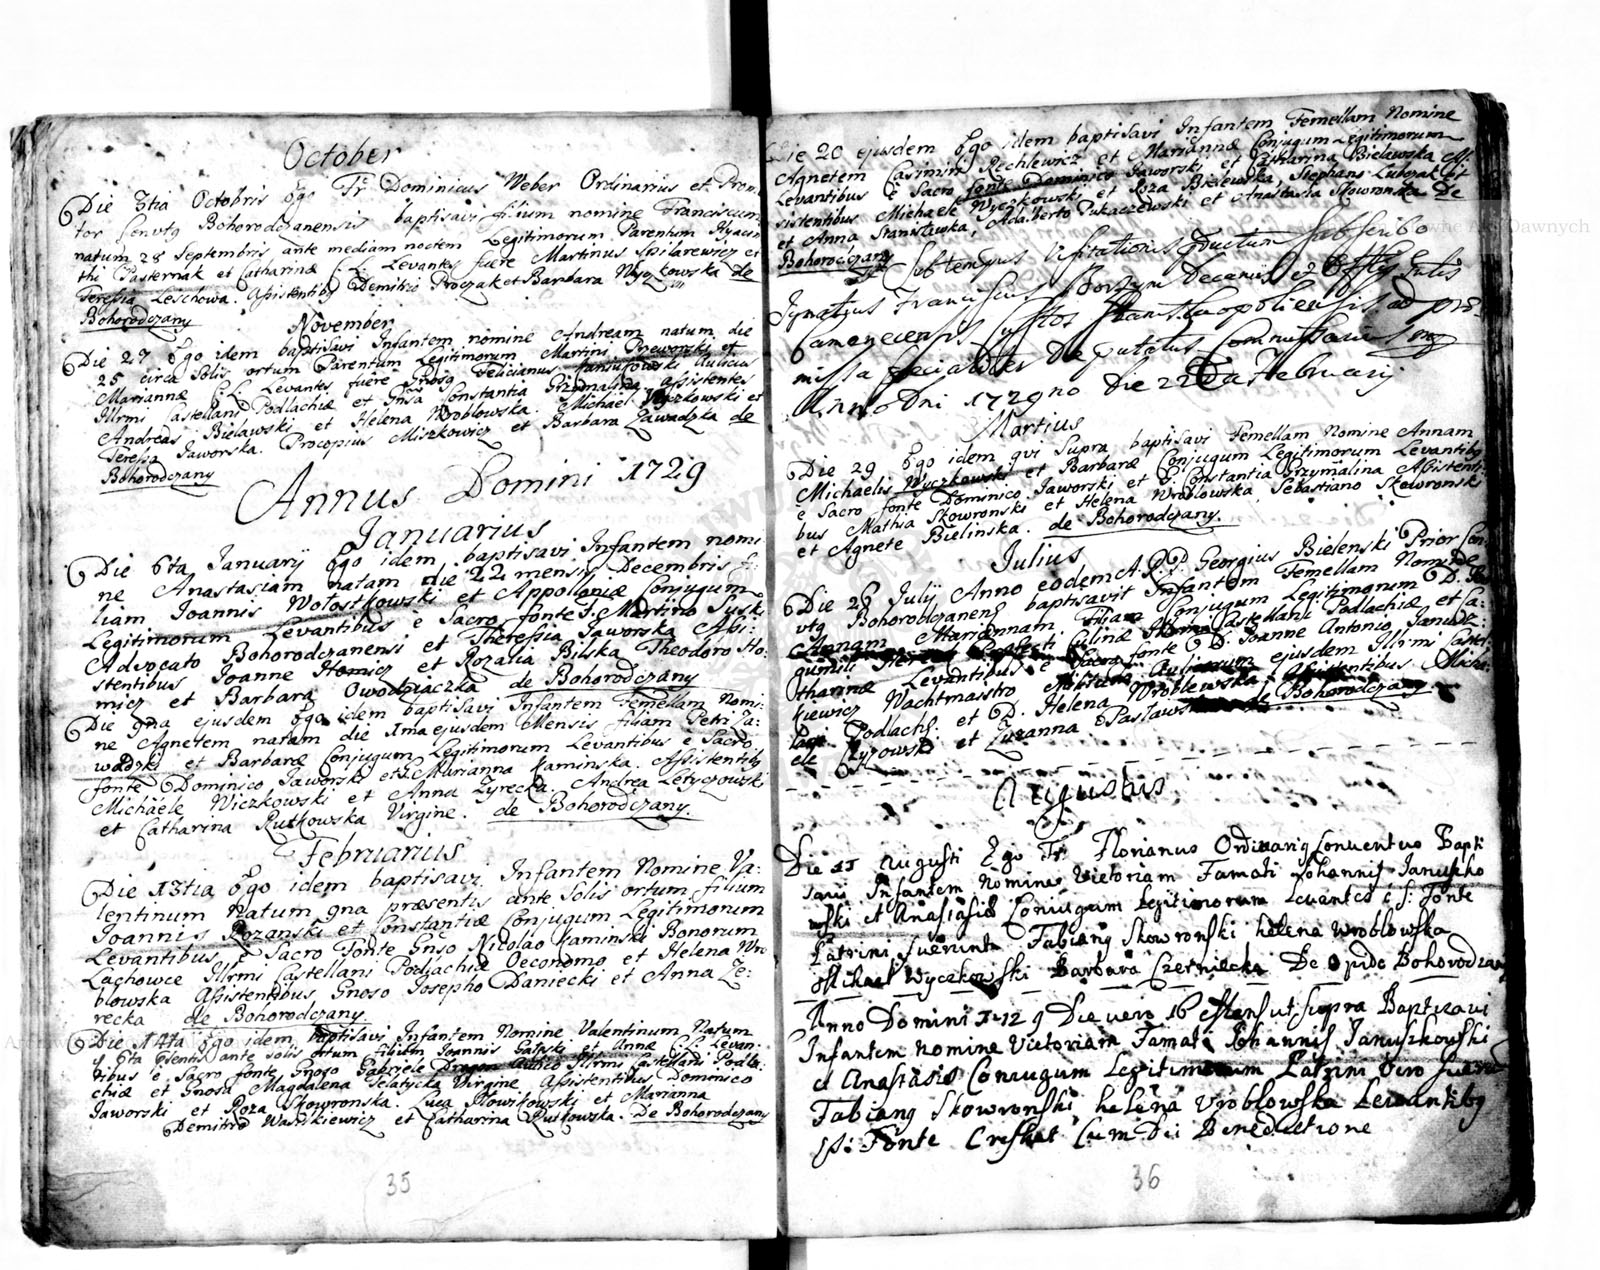 October
Die 8tia Octobris Ego Fr Dominicus Weber Ordinarius et Promo
tor Convtg Bohorodczanensis baptisavi filium nomine Franciscum
natum 28 Septembris ante mediam noctem Legitimorum Parentum Hyacin
thi Pasternak et Catharinæ C. L. Levantes fuere Martinus Spilarewicz et
Teressia Leschowa. Assistentibg Demitrio Proczak et Barbara Wyczkowska de
Bohorodczany
November
Die 27 Ego idem baptisavi Infantem nomine Andream natum die
25 circa Solis ortum Parentum Legitimorum Martini Gneworski et
Mariannæ C. L. Levantes fuere Gnoso Felicianus Aulicus
Illrmi Castellani Podlachiæ et Gnsa Constantia Przymalina assistentes
Andreas Bielawski et Helena Wroblowska. Michael Wyczkowski et
Teressa Jaworska. Procopius Miszkowicz et Barbara Zawadzka de
Bohorodczany
Annus Domini 1729
Januarius
Die 6ta Januarij Ego idem baptisavi Infantem nomi
ne Anastasiam natam die 22 mensis Decembris fi:
liam Joannis Wołostkowski et Appolloniæ Conjugum
Legitimorum Levantibus è Sacro fonte F. Martino Suski
Advocato Bohorodczanensi et Theressia Jaworska Assi:
stentibus Joanne Homicz et Rozalia Bilska Theodoro Ho:
micz et Barbara Owodziaczka de Bohorodczany
Die 9na ejusdem Ego idem baptisavi Infantem Femellam Nomi:
ne Agnetem natam die 1ma ejusdem Mensis filiam Petri Za:
wadzki et Barbaræ Conjugum Legitimorum Levantibus è Sacro
fonte Dominico Jaworski et Marianna Kaminska. Assistentibg
Michaele Wiczkowski et Anna Zyrecka. Andrea Letyczowski
et Catharina Rutkowska Virgine. de Bohorodczany.
Februarius
Die 13tia Ego idem baptisavi Infantem Nomine Va:
lentinum Natum 9na præsentis ante Solis ortum filium
Joannis Rozanski et Constantiæ Conjugum Legitimorum
Levantibus è Sacro Fonte Gnso Nicolao Kaminski Bonorum
Lachowce Illrmi Castellani Podlachiæ Oeconomo et Helena Wro
blowska Assistentibus Gnoso Josepho Daniecki et Anna Ze:
recka de Bohorodczany.
Die 14ta Ego idem baptisavi Infantem Nomine Valentinum Natum
6ta psentis ante solis ortum filium Joannis Galpski et Annæ C. L. Levan:
tibus è Sacro fonte Gnoso Gabriele Dragon Aulico Illrmi Castellani Podla:
chiæ et Gnosa Magdalena Telatycka Virgine Assistentibus Dominico
Jaworski et Roza Skowronska. Luca Nowikowski et Marianna
Demitro Wasilkiewicz et Catharina Rutkowska. De Bohorodczany
35
Die 20 ejusdem Ego idem baptisavi Infantem Femellam Nomine
Agnetem Casimiri Rechlewicz et Mariannæ Conjugum Legitimorum
Levantibus è Sacro fonte Dominico Jaworski et Catharina Bielawska As:
sistentibus Michaele Wyczkowski et Roza Bielewska, Stephano Lubczak et
et Anna Stanislawska, Adalberto Pukaczewski et Anastasia Skowronska De
Bohorodczany
Sub tempus Visitationis Subscribo
Ignatius Franciscus Borzym Decanus et Offlis
Camenecensis Custos Stanislaopoliensis ad præ
missa specialiter Deputatus Commissarius
Anno Dni 1729no Die 22da Februarij
Martius
Die 29 Ego idem qvi Supra baptisavi Femellam Nomine Annam
Michaelis Wyczkowski et Barbaræ Conjugum Legitimorum Levantibg
è Sacro fonte Dominico Jaworski et G. Constantia Przymalina Assistenti
bus Mathia Skowronski et Helena Wroblowska, Sebastiano Skowronski
et Agnete Bielinska. de Bohorodczany.
Julius
Die 26 Julij Anno eodem A. R. P. Georgius Bielenski Prior Con
vtg Bohorodczanens baptisavit Infantem Femellam Nomine
Annam Mariannam Filiam Conjugum Legitimorum D. Bo
gumili Culinæ Castellani Podlachiæ et Ca:
tharinæ Levantibus è Sacro fonte D. Joanne Antonio Janusz
kiewicz Wachtmaistro ejusdem Illrmi Castel:
lani Podlachs. et D. Helena Wroblewska Assistentibus Micha:
ele Ryzowski et Zuzanna Pasław de Bohorodczany
Augustus
Die 15 Augusti Ego Fr. Florianus Ordinarig Conventus Bapti
savi Infantem Nomine Victoriam Famati Johannis Januszko
wski et Anastasiæ Coniugum Legitimorum Levantes è S: Fonte
Patrini fuerunt Fabiang Skowronski helena Wroblowska
Michael Wyczkowski Barbara Czerniecka De Opido Bohorodczany
Anno Domini 1729 Die vero 16 Estens ut supra Baptizavi
Infantem nomine Victoriam Famati Johannis Januszkowski
et Anastasiæ Coniugum Legitimorum Patrini Vero fuerunt
Fabiang Skowronski helena Wroblowska Levantibg
S: Fonte Crescat Cum Dei Benedictione
36